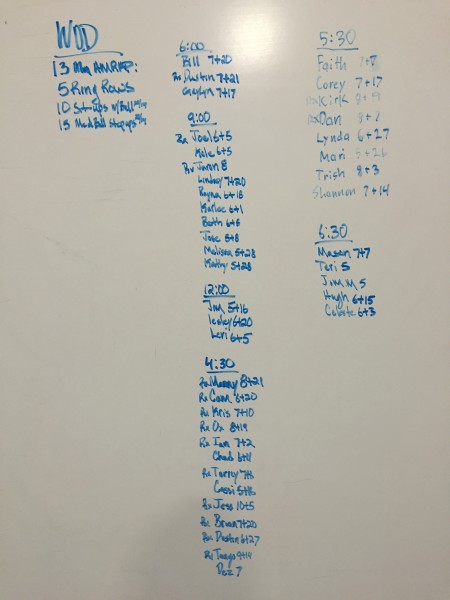 WOD
13 Min AMRAP:
5 Ring Rows
10 Sit-ups w/Ball
15 Med Ball Step ups
6:00
Bill 7+20
Rx Dustin 7+21
Gaylyn 7+17
9:00
Rx Joel 6+5
Kole 6+5
Rx Jaron 8
Lindsey 7+20
Rayna 6+18
Karlee 6+1
Beth 6+5
Jose 5+8
Melissa 5+28
Kathy 5+28
12:00
Jim 5+16
Lesley 6+20
Leri 6+5
4:30
Rx Manny 8+21
Rx Cam 8+20
Rx Kris 7+10
Rx Ox 8+19
Rx Ian 7+2
Chad 6+11
Rx Torrey 7+6
Cassi 5+16
Rx Jess 10+5
Rx Brian 7+20
Rx Dustin 6+27
Rx 9+14
Dez 7
5:30
Faith 7+7
Corey 7+17
Kirk 8+9
Dan 8+7
Lynda 6+27
Mari 5+26
Trish 8+3
Shannon 7+14
6:30
Mason 7+7
Teri 5
Jim M 5
Hugh 6+15
Celeste 6+3